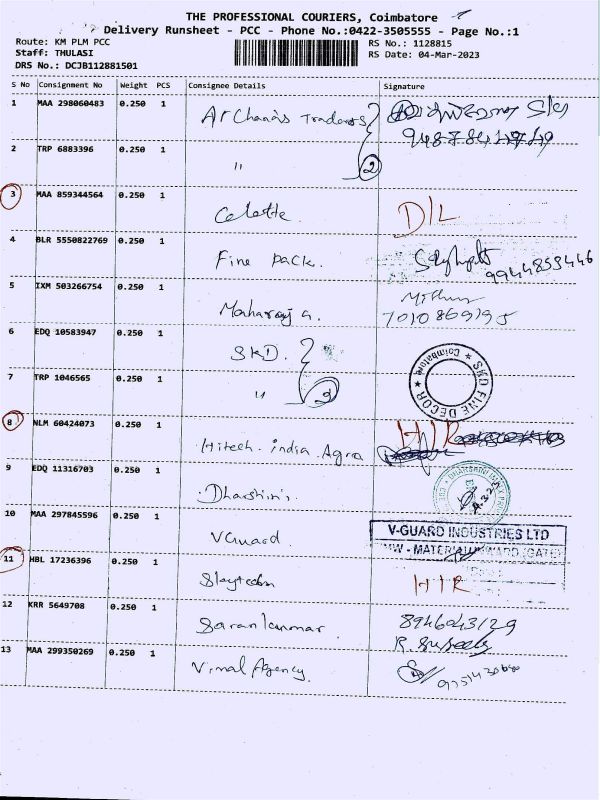 THE PROFESSIONAL COURIERS, Coimbatore
Delivery Runsheet - PCC - Phone No.:0422-3505555 - Page No.:1
Route: KM PLM PCC
RS No.: 1128815
Staff: THULASI
RS Date: 04-Mar-2023
DRS No.: DCJB112881501
S No Consignment No Weight PCS Consignee Details Signature
1 MAA 298060483 0.250 1
Archana's Traders
2 TRP 6883396 0.250 1
" 2
3 MAA 859344564 0.250 1
D/L
4 BLR 5550822769 0.250 1
Fine pack.
9944853446
5 IXM 503266754 0.250 1
Maharaja.
7010869195
6 EDQ 10583947 0.250 1
SKD.
SKD FINE DECOR * Coimbatore *
7 TRP 1046565 0.250 1
" 2
8 NLM 60424073 0.250 1
Hitech india Agra
H/R
9 EDQ 11316703 0.250 1
Dharshini.
10 MAA 297845596 0.250 1
VGuard
V-GUARD INDUSTRIES LTD
11 HBL 17236396 0.250 1
H/R
12 KRR 5649708 0.250 1
Sarankumar.
8946043129
R. Suseela
13 MAA 299350269 0.250 1
Vimal Agency.